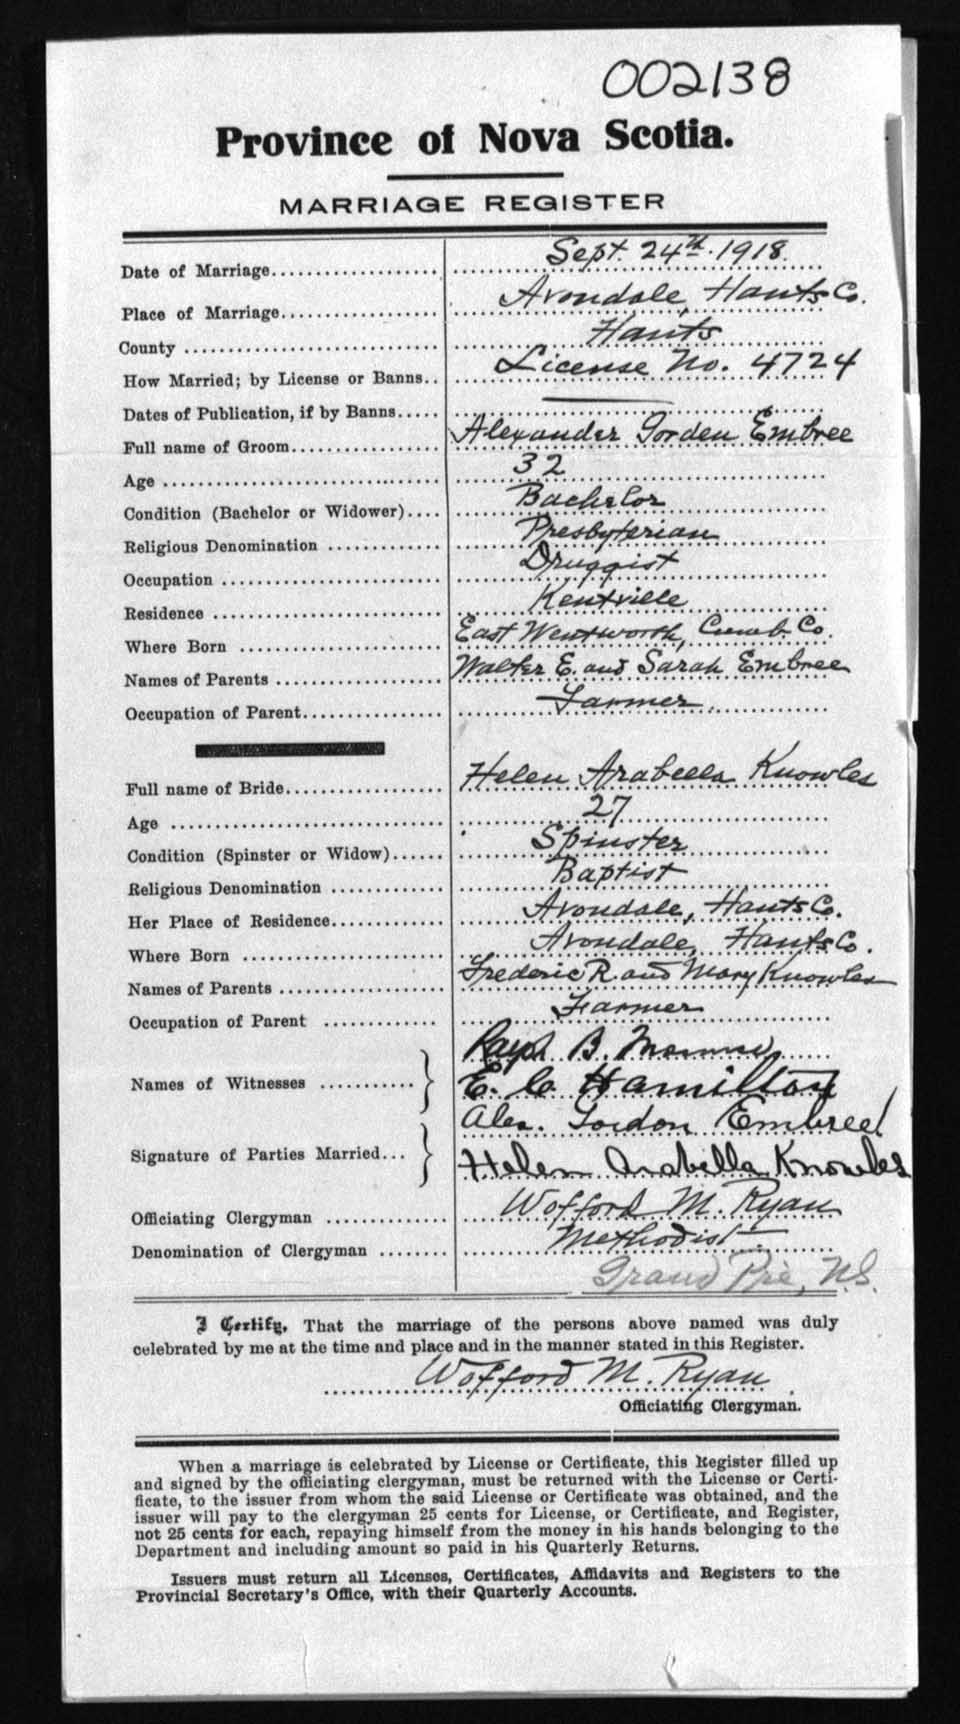 002138
Province of Nova Scotia.
MARRIAGE REGISTER
Date of Marriage.................... Sept. 24th 1918.
Place of Marriage.................. Avondale, Hants Co.
County .............................. Hants
How Married; by License or Banns.. License No. 4724
Dates of Publication, if by Banns..... —
Full name of Groom................. Alexander Gorden Embree
Age ................................ 32
Condition (Bachelor or Widower).... Bachelor
Religious Denomination ............. Presbyterian
Occupation ......................... Druggist
Residence .......................... Kentville
Where Born ........................ East Wentworth, Cumb. Co.
Names of Parents ................... Walter E. and Sarah Embree
Occupation of Parent................ Farmer
Full name of Bride.................. Helen Arabella Knowles
Age ................................ 27
Condition (Spinster or Widow)...... Spinster
Religious Denomination ............. Baptist
Her Place of Residence.............. Avondale, Hants Co.
Where Born ........................ Avondale, Hants Co.
Names of Parents ................... Frederic R. and Mary Knowles
Occupation of Parent ............... Farmer
B.
Names of Witnesses ........... } E. C. Hamilton
Alex. Gordon Embree
Signature of Parties Married... } Helen Arabella Knowles
Officiating Clergyman .............. Wofford M. Ryan
Denomination of Clergyman ........ Methodist
Grand Pre, N.S.
I Certify, That the marriage of the persons above named was duly
celebrated by me at the time and place and in the manner stated in this Register.
Wofford M. Ryan
Officiating Clergyman.
When a marriage is celebrated by License or Certificate, this Register filled up
and signed by the officiating clergyman, must be returned with the License or Certi-
ficate, to the issuer from whom the said License or Certificate was obtained, and the
issuer will pay to the clergyman 25 cents for License, or Certificate, and Register,
not 25 cents for each, repaying himself from the money in his hands belonging to the
Department and including amount so paid in his Quarterly Returns.
Issuers must return all Licenses, Certificates, Affidavits and Registers to the
Provincial Secretary's Office, with their Quarterly Accounts.